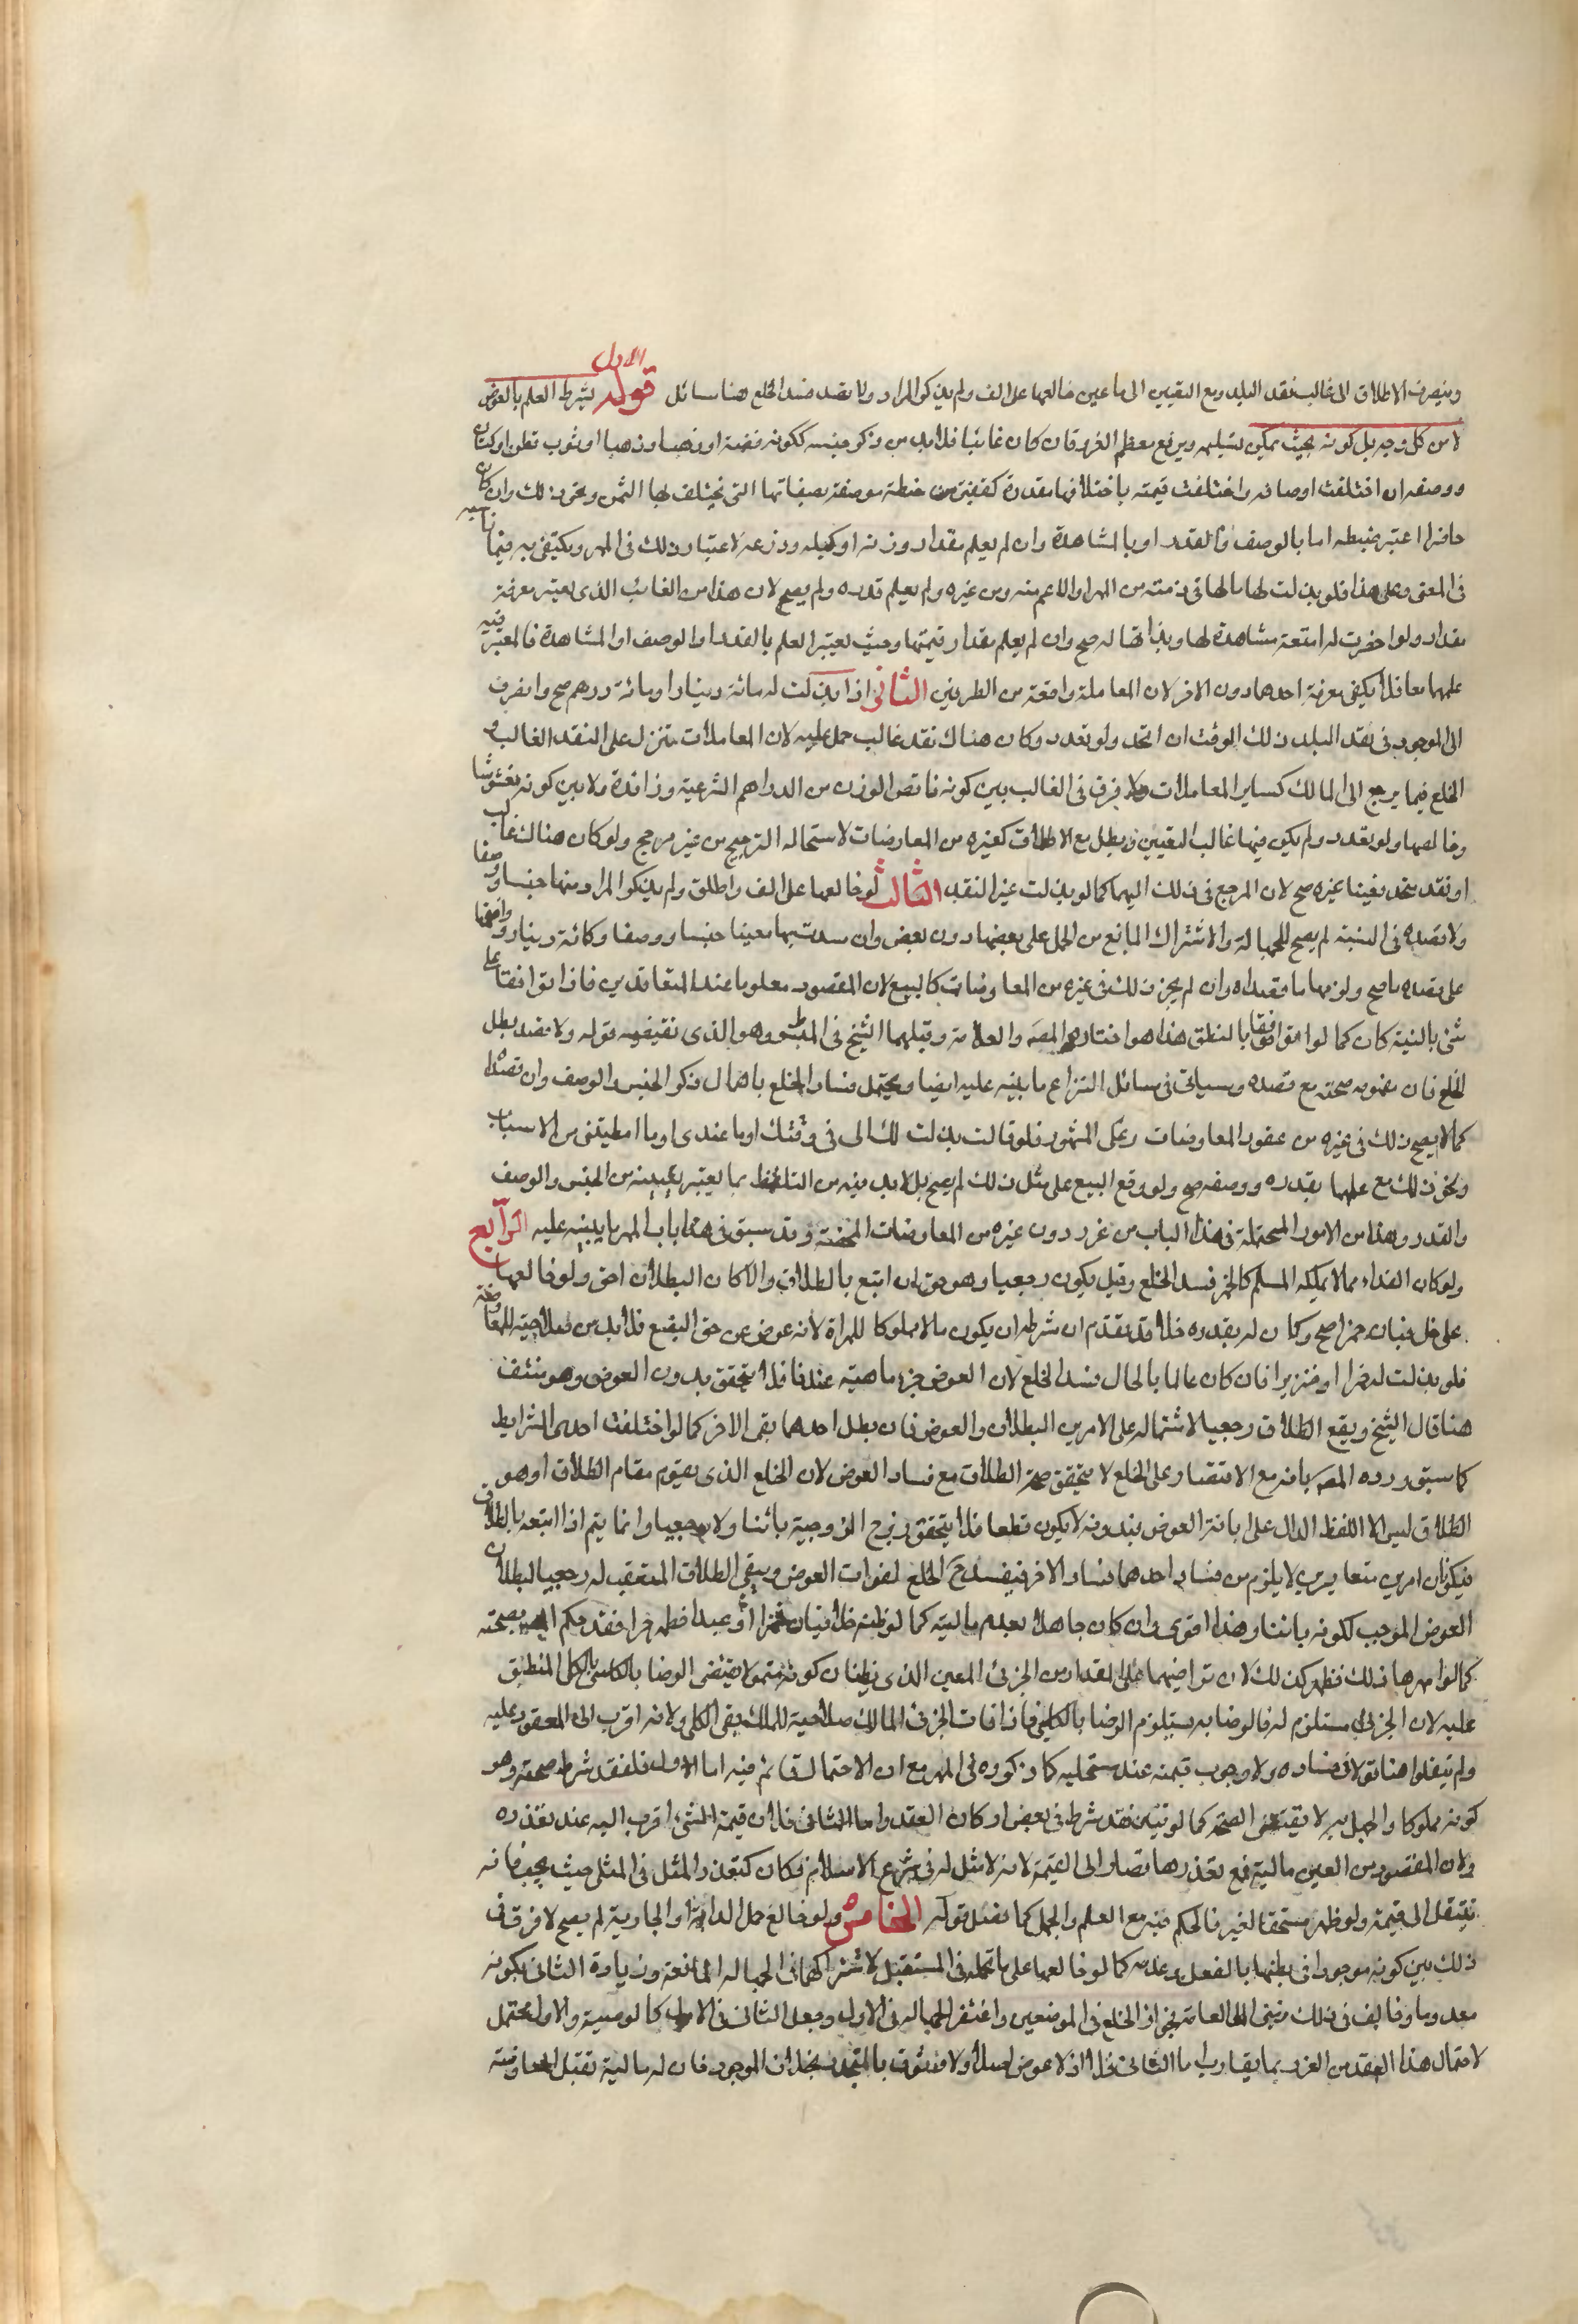 الاول
وينصرف الاطلاق الى غالب نقد البلد ومع التعيين الى ما عين خالعها على الف ولم يذكر المراد ولا قصد فسد الخلع هنا مسائل قوله يشترط العلم بالعوض
لا من كل وجه بل كونه بحيث يمكن تسليمه ويرتفع معظم الغرر فان كان غائبا فلابد من ذكر جنسه ككونه فضة او ذهبا او ثوب قطن او كتان
ووصفه ان اختلفت اوصافه واختلفت قيمته باختلافها مقدرة كقفيز حنطة موصفة بصفاتها التي يختلف بها الثمن ونحو ذلك وان كان
حاضرا اعتبر ضبطه اما بالوصف والقدر او بالمشاهدة وان لم يعلم مقدار وزنه او كيله وذرعه لاعتبار ذلك في المهر ويكتفى به فيما ناسبه
في المعنى وعلى هذا فلو بذلت لها مالها في ذمته من المهر او الاعم منه ومن غيره ولم يعلم قدره لم يصح لان هذا من الغائب الذي يعتبر معرفة
مقداره ولو احضرت له امتعة مشاهدة لها وبذلتها له صح وان لم يعلم مقدار قيمتها وحيث يعتبر العلم بالقدر او الوصف او المشاهدة فالمعتبر فيه
علمهما معا فلا يكفى معرفة احدهما دون الاخر لان المعاملة واقعة من الطرفين الثاني اذا بذلت له مائة دينار او مائة درهم صح وانصرف
الى الموجود في نقد البلد ذلك الوقت ان اتحد ولو تعدد وكان هناك نقد غالب حمل عليه لان المعاملات تنزل على النقد الغالب و
الخلع فيما يرجع الى المالك كساير المعاملات ولا فرق في الغالب بين كونه ناقص الوزن من الدراهم الشرعية وزائدة ولا بين كونه مغشوشا
وخالصها ولو تعدد ولم يكن فيها غالب التعيين وبطل مع الاطلاق كغيره من المعاوضات لاستحالة الترجيح من غير مرجح ولو كان هناك غالب
او نقد متحد فعينا غيره صح لان المرجع في ذلك اليهما كما لو بذلت غير النقد الثالث لو خالعها على الف واطلق ولم يذكر المراد منها جنسا ووصفا
ولا قصده في النية لم يصح للجهالة والاشتراك المانع من الحمل على بعضها دون بعض وان قصدت بها معينا جنسا ووصفا وكمائة دينار واتفقا
على قصده صح ولزمهما ما قصداه وان لم يجز ذلك في غيره من المعاوضات كالبيع لان المقصود معلوما عند المتعاقدين فاذا توافقا على
شئ بالنية كان كما لو توافقا بالنطق هذا هو اختاره المصه والعلامة وقبلهما الشيخ في المبسوط وهو الذي تقتضيه قوله ولا قصد بطل
الخلع فان مفهومه صحته مع قصده وسيأتي في مسائل النزاع ما ينبه عليه ايضا ويحتمل فساد الخلع باهمال ذكر الجنس والوصف وان قصدا
كما لا يصح ذلك في غيره من عقود المعاوضات على المشهور فلو قالت بذلت لك الى في ذمتك او ما عندي او ما اعطيتني من الاسباب
ونحو ذلك مع علمهما بقدره ووصفه صح ولو وقع البيع على مثل ذلك لم يصح بل لابد فيه من التلفظ بما يعتبر تعيينه من الجنس والوصف
والقدر وهذا من الامور المحتملة في هذا الباب من غرر دون غيره من المعاوضات المحضة وقد سبق في هذا باب المهر ما ينبه عليه الرابع
ولو كان الفداء مما لا يملكه المسلم كالخمر فسد الخلع وقيل يكون رجعيا وهو حق ان اتبع بالطلاق والا كان البطلان احق ولو خالعها
على خل فبان خمرا صح وكان له بقدره خلا قد تقدم ان شرطه ان يكون مالا مملوكا للمراة لانه عوض عن حق البضع فلابد من صلاحيته للمعاوضة
فلو بذلت له خمرا او خنزيرا فان كان عالما بالحال فسد الخلع لان العوض جزء ماهيته عندنا فلا يتحقق بدون العوض وهو منتف
هنا قال الشيخ ويقع الطلاق رجعيا لاشتماله على الامرين البطلان والعوض فان بطل احدهما بقى الاخر كما لو اختلفت احدى الشرايط
كما سبق ورده المصه بانه مع الاقتصار على الخلع لا يتحقق صحة الطلاق مع فساد العوض لان الخلع الذي يقوم مقام الطلاق او هو
الطلاق ليس الا اللفظ الدال على ابانة العوض فبدونه لا يكون قطعا فلا يتحقق رفع الزوجية بائنا ولا رجعيا وانما يتم اذا اتبعه بالطلاق
فيكونان امرين متغايرين لا يلزم من فساد احدهما فساد الاخر فيفسد ح الخلع لفوات العوض ويبقى الطلاق المتعقب له رجعيا لبطلان
العوض الموجب لكونه بائنا وهذا اقوى وان كان جاهلا بعدم ماليته كما لو ظنه خلا فبان خمرا او عبدا فظهر حرا فقد حكم بصحته
كما لو امهرها ذلك فظهر كذلك لان تراضيهما على المقدار من الجزئي المعين الذي يظنان كونه متمولا يقتضى الرضا بالكلى المنطبق
عليه لان الجزئي مستلزم له فالرضا به يستلزم الرضا بالكلي فاذا فات الجزئي المالك صلاحية للملك بقى الكلى ولانه اقرب الى المعقود عليه
ولم ينقلوا هنا قولا في فساده ولا وجوب قيمته عند مستحليه كما ذكروه في المهر مع ان الاحتمال قائم فيه اما الاول فلفقد شرط صحته وهو
كونه مملوكا والجهل به لا يقتضى الصحة كما لو تبين فقد شرط في بعض اركان العقد واما الثاني فلان قيمة الشئ اقرب اليه عند تعذره
ولان المقصود من العين مالية فمع تعذرها تصار الى القيمة لانه لا مثل له في شرع الاسلام فكان كتعذر المثل في المثلى حيث يجب فانه
تنتقل الى قيمته ولو ظهر مستحقا لغيره فالحكم فيه مع العلم والجهل كما فصل قوله الخامس ولو خالع حمل الدابة او الجارية لم يصح لا فرق في
ذلك بين كونه موجودا في بطنها بالفعل وعدمه كما لو خالعها على ما تحمله في المستقبل لاشتراكهما في الجهالة المانعة وزيادة الثاني بكونه
معدوما وخالف في ذلك بعض العامة فجوز الخلع في الموضعين واغتفر الجهالة في الاول وجعل الثاني في الاول كالوصية والاول محتمل
لاحتمال هذا العقد من الغرر بما يقارب اما الثاني فلا اذ لا عوض اصلا ولا وثوق بالمتجدد بخلاف الموجود فان له مالية تقبل المعاوضة